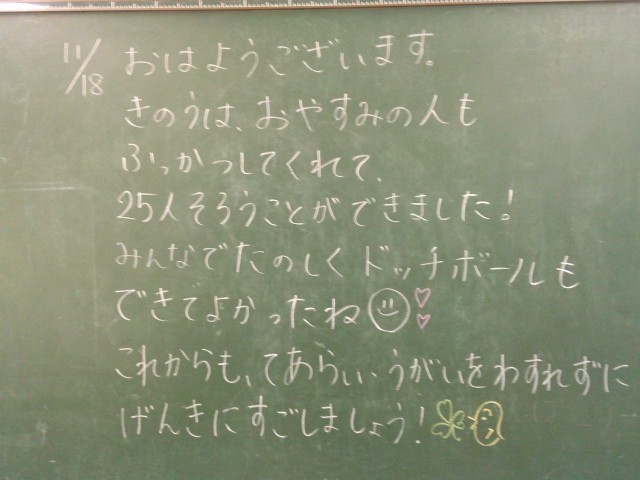 11/18 おはようございます。
きのうは、おやすみの人も
ふっかつしてくれて、
25人そろうことができました!
みんなでたのしくドッチボールも
できてよかったね
これからも、てあらい・うがいをわすれずに
げんきにすごしましょう!